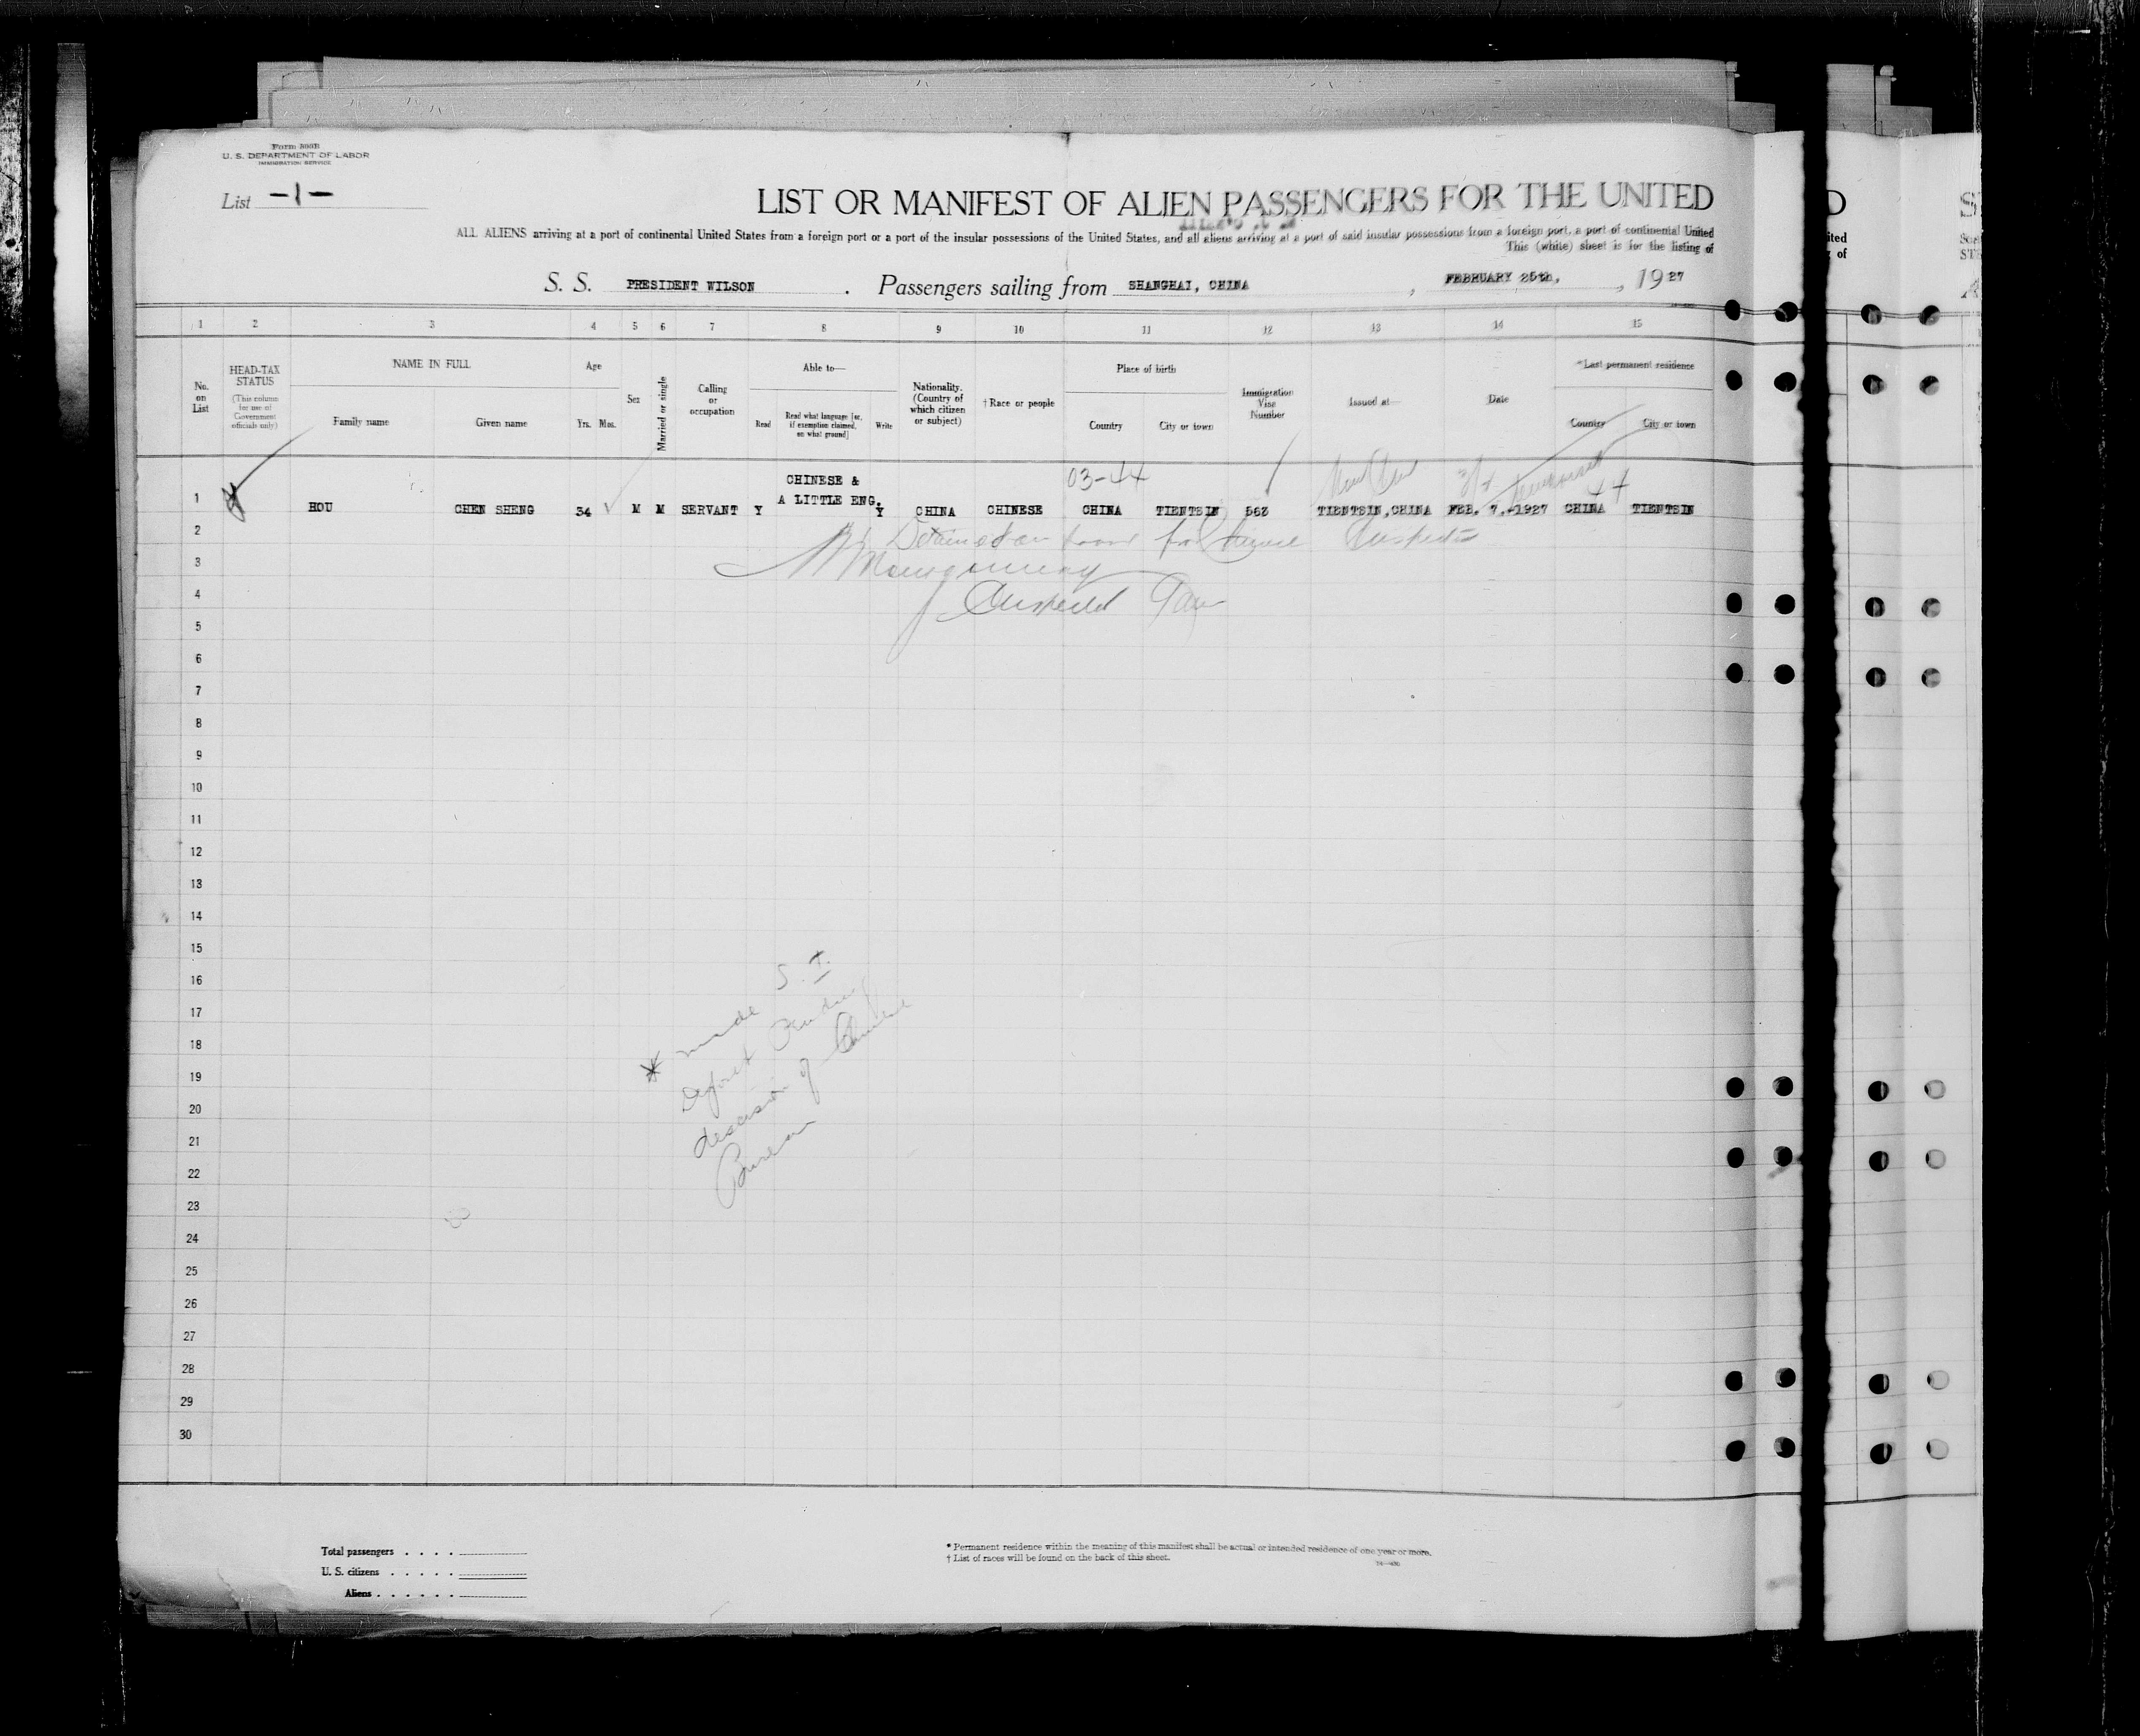 Form 500B
U. S. DEPARTMENT OF LABOR
IMMIGRATION SERVICE
List -1-
LIST OR MANIFEST OF ALIEN PASSENGERS FOR THE UNITED
ALL ALIENS arriving at a port of continental United States from a foreign port or a port of the insular possessions of the United States, and all aliens arriving at a port of said insular possessions from a foreign port, a port of continental United
This (white) sheet is for the listing of
S. S. PRESIDENT WILSON . Passengers sailing from SHANGHAI, CHINA , FEBRUARY 25th, , 1927
1 2 3 4 5 6 7 8 9 10 11 12 13 14 15
No. on List
HEAD-TAX STATUS (This column for use of Government officials only)
NAME IN FULL
Family name Given name
Age
Yrs. Mos.
Sex
Married or single
Calling or occupation
Able to—
Read Read what language [or, if exemption claimed, on what ground] Write
Nationality. (Country of which citizen or subject)
†Race or people
Place of birth
Country City or town
Immigration Visa Number
Issued at—
Date
*Last permanent residence
Country City or town
03-44
44
CHINESE &
A LITTLE ENG.
1 HOU CHEN SHENG 34 M M SERVANT Y Y CHINA CHINESE CHINA TIENTSIN 563 TIENTSIN, CHINA FEB. 7, -1927 CHINA TIENTSIN
2 Detained on board for Chinese
3 Montgomery
4
5
6
7
8
9
10
11
12
13
14
15
16
17
18
19
20
21
22
23
24
25
26
27
28
29
30
* made S. I.
Deposit Pending
decision of Chinese
Bureau
Total passengers . . . .
U. S. citizens . . . . .
Aliens . . . . . .
* Permanent residence within the meaning of this manifest shall be actual or intended residence of one year or more.
† List of races will be found on the back of this sheet.
D
ited
of
S
A